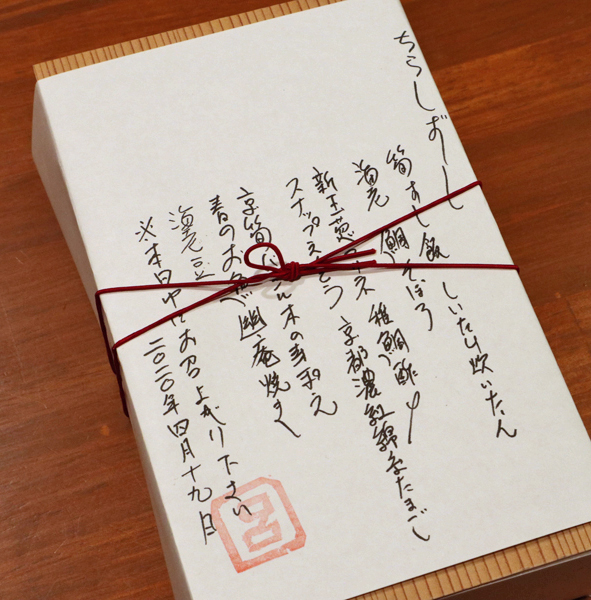 ちらしずし
筍すし飯 しいたけ炊いたん
海老 鯛そぼろ 稚鯛酢〆
新玉葱 京都濃紅錦糸たまご
スナップえんどう
京筍 木の芽和え
春のお魚 幽庵焼き
海老豆
※本日中にお召しよがり下さい
二〇二〇年四月十九日
呂